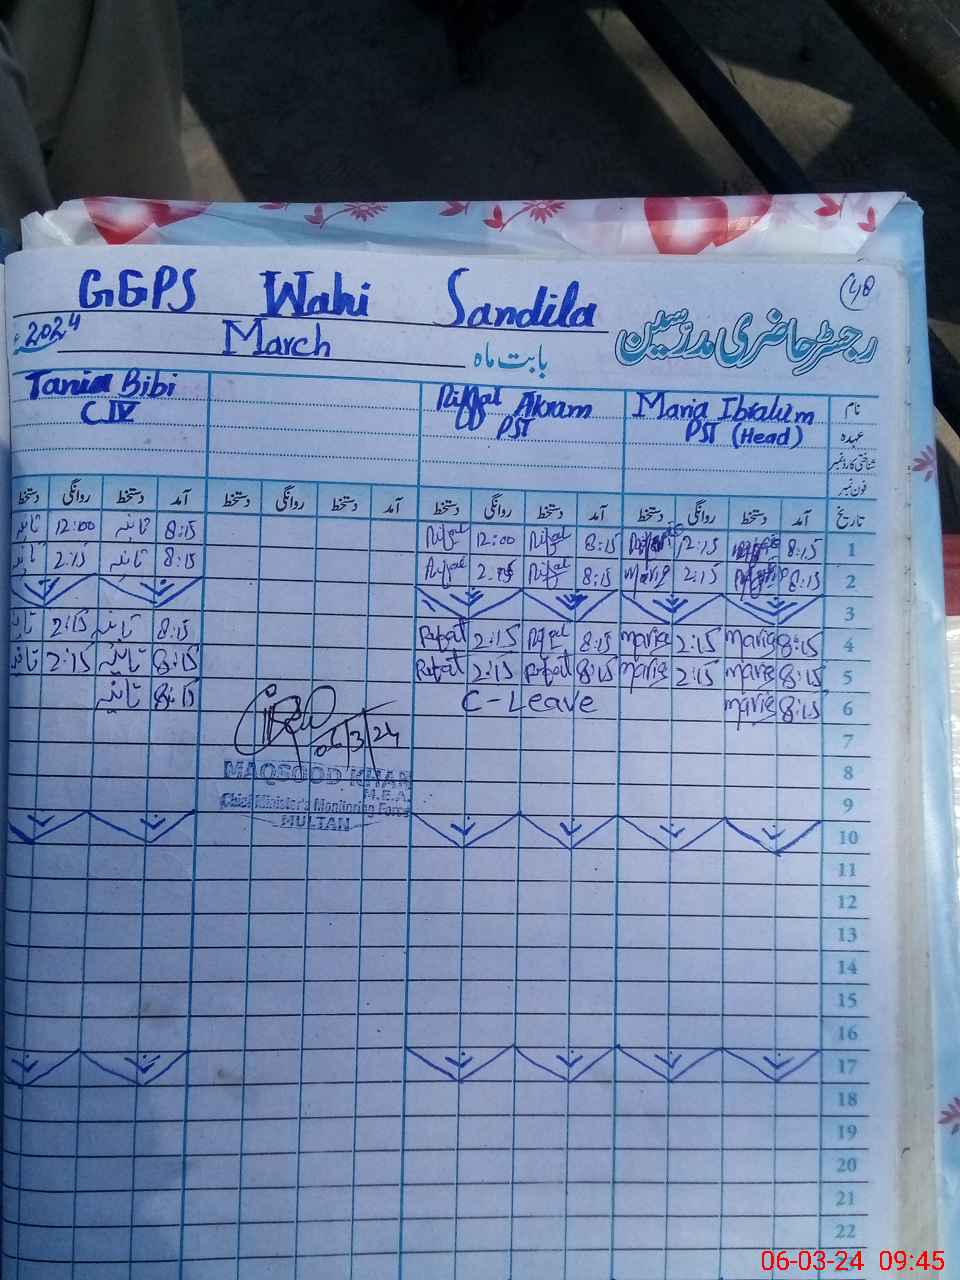 48
GGPS Wahi Sandila
رجسٹر حاضری مدرسین
2024 March بابت ماہ
Tania Bibi Riffat Akram Maria Ibrahim نام
C IV PST PST (Head) عہدہ
شناختی کارڈ نمبر
فون نمبر
تاریخ آمد دستخط روانگی دستخط آمد دستخط روانگی دستخط آمد دستخط روانگی دستخط آمد دستخط روانگی دستخط
تانیہ 12:00 تانیہ 8:15 Rifat 12:00 Rifat 8:15 12:15 8:15 1
تانیہ 2:15 تانیہ 8:15 Rifat 2:15 Rifat 8:15 Maria 2:15 8:15 2
3
تانیہ 2:15 تانیہ 8:15 Rifat 2:15 Rifat 8:15 Maria 2:15 Maria 8:15 4
تانیہ 2:15 تانیہ 8:15 Rifat 2:15 Rifat 8:15 Maria 2:15 Maria 8:15 5
تانیہ 8:15 C-Leave Maria 8:15 6
06/3/24 7
MAQSOOD KHAN 8
M.E.A.
Chief Minister's Monitoring Force 9
MULTAN 10
11
12
13
14
15
16
17
18
19
20
21
22
23
06-03-24 09:45